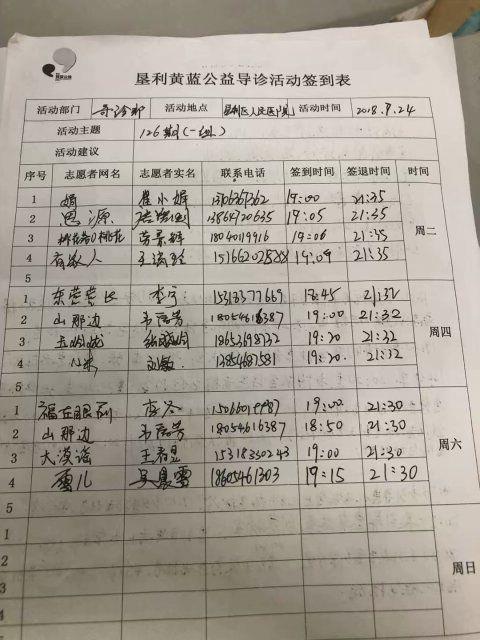 垦利黄蓝公益导诊活动签到表
活动部门 导诊部 活动地点 垦利区人民医院 活动时间 2018.9.24
活动主题 126期(一组)
活动建议
序号 志愿者网名 志愿者实名 联系电话 签到时间 签退时间 时间
1 娟 崔小娟 19:00 21:35
2 思源 13864720635 19:05 21:35
周二
3 桃花 18040119916 19:06 21:35
4 有故人 19:09 21:35
5
1 李宁 15313377669 18:45 21:32
2 山那边 韦秀芳 18054616387 19:00 21:32
周四
3 18653698732 19:20 21:32
4 小米 刘敏 13854687581 19:20 21:32
5
1 福在眼前 19:00 21:30
2 山那边 韦秀芳 18054616387 18:50 21:30
周六
3 大漠谣 王春昱 15318350243 19:00 21:30
4 雪儿 吴晨雪 18605461303 19:15 21:30
5
1
2
3
周日
4
5